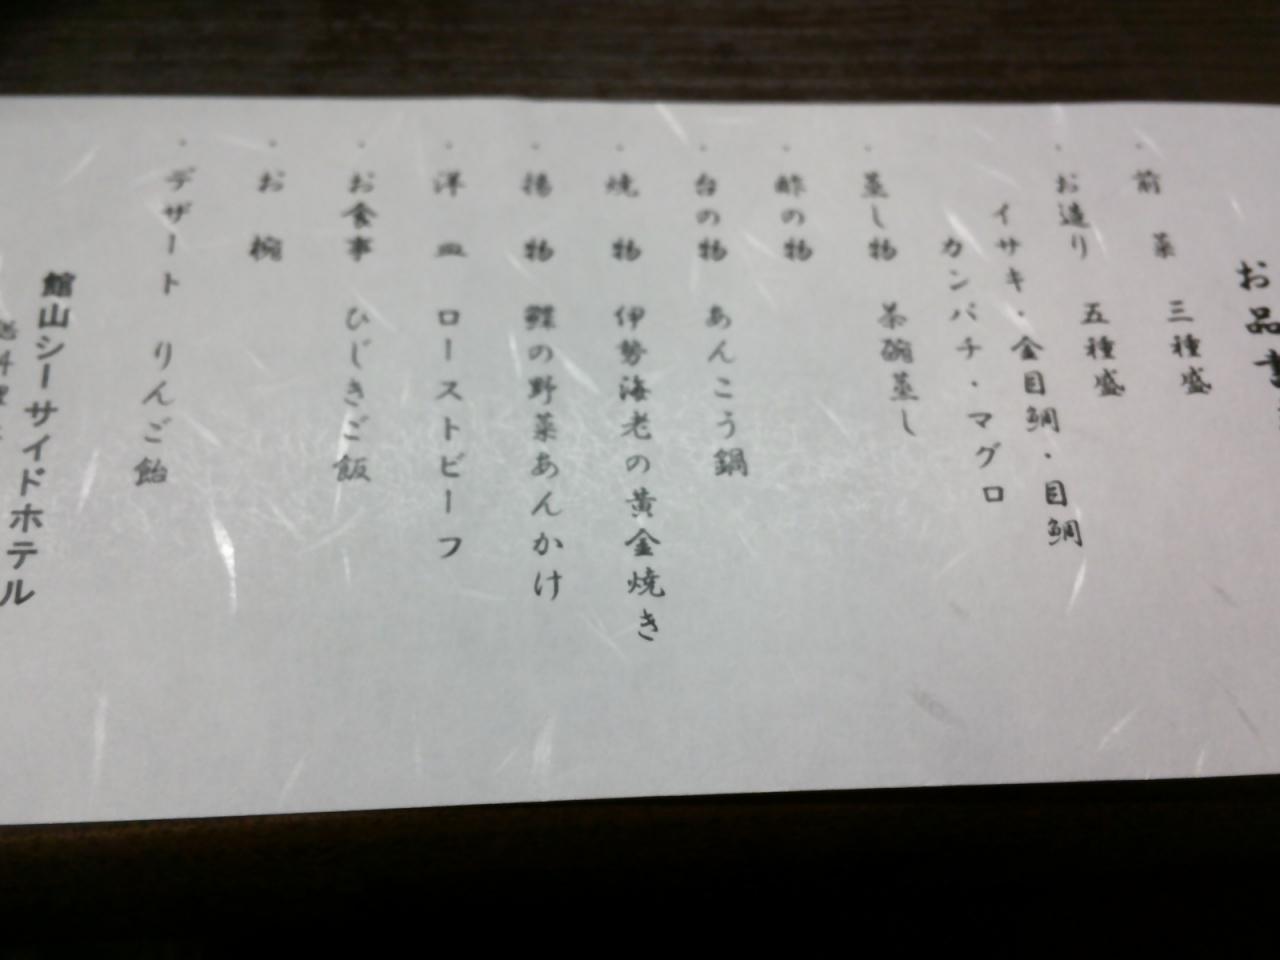 お品書
・前菜 三種盛
・お造り 五種盛
イサキ・金目鯛・目鯛
カンパチ・マグロ
・蒸し物 茶碗蒸し
・酢の物
・台の物 あんこう鍋
・焼物 伊勢海老の黄金焼き
・揚物 鰈の野菜あんかけ
・洋皿 ローストビーフ
・お食事 ひじきご飯
・お椀
・デザート りんご飴
館山シーサイドホテル